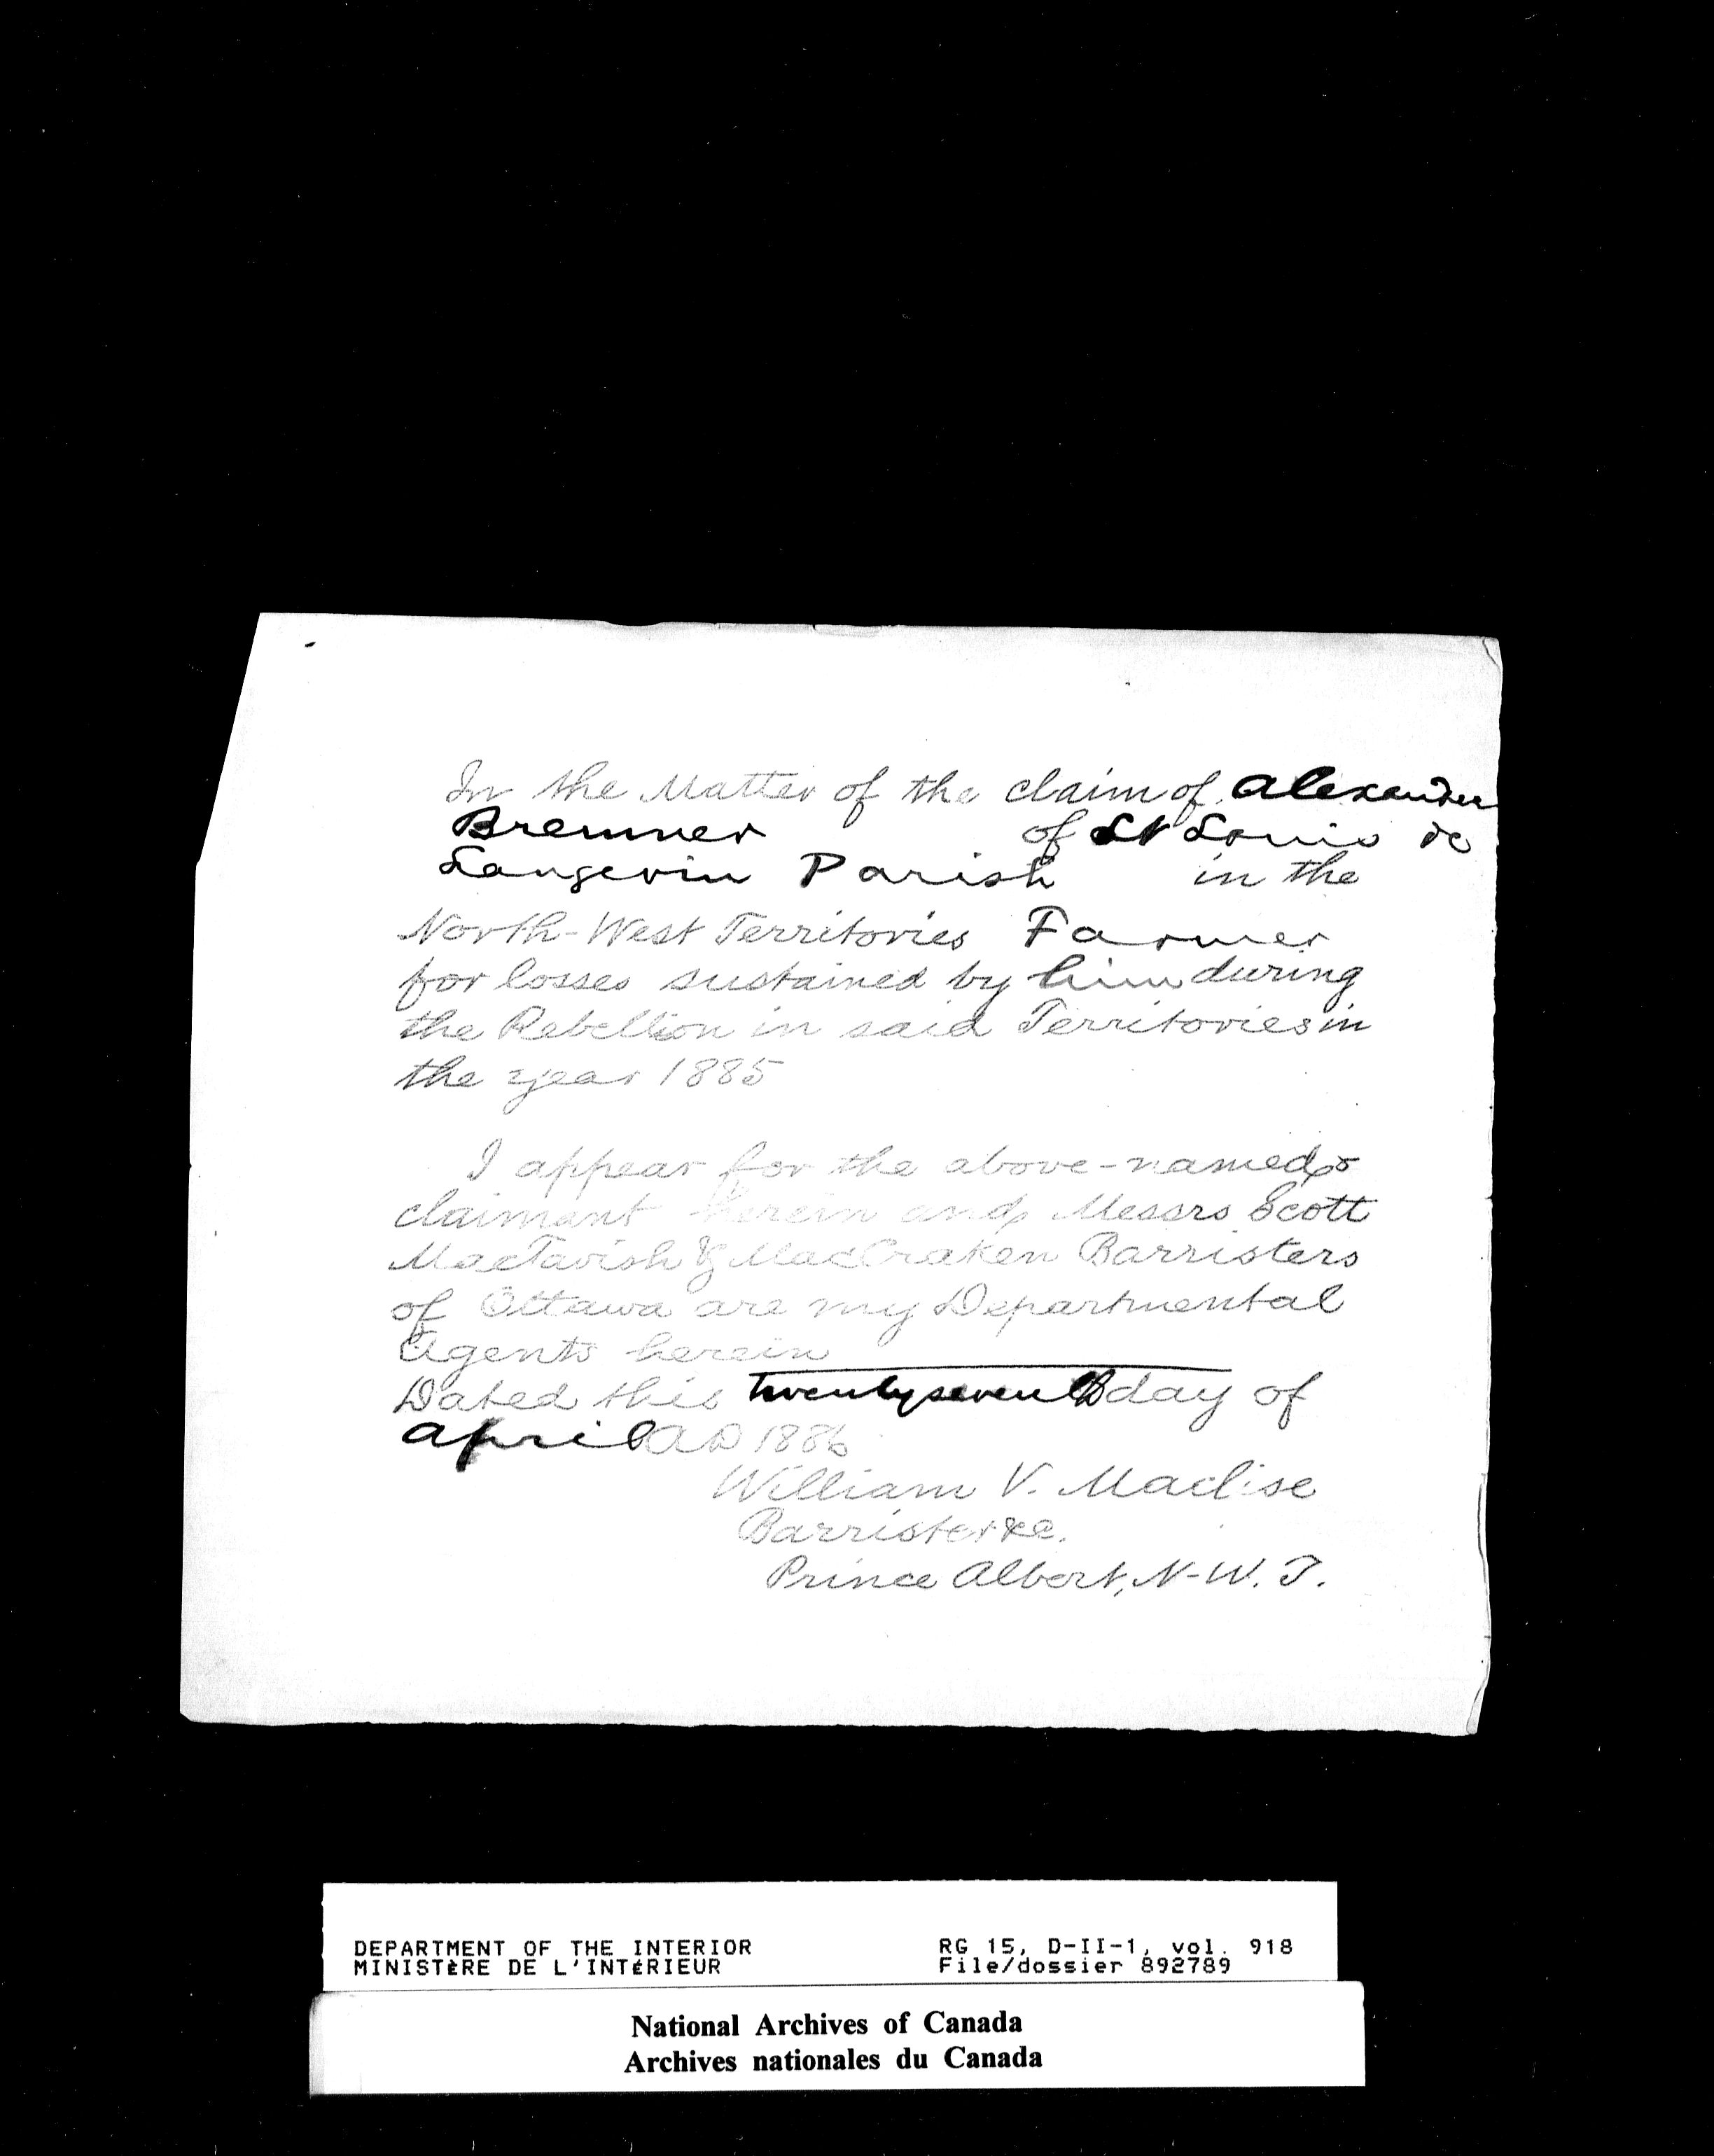 In the Matter of the claim of Alexander
Bremner of St Louis de
Langevin Parish in the
North-West Territories Farmer
for losses sustained by him during
the Rebellion in said Territories in
the year 1885
I appear for the above-named
claimant herein and Messrs Scott
MacTavish & MacCraken Barristers
of Ottawa are my Departmental
Agents herein
Dated this twentyseventh day of
April AD 1886
William V. Maclise
Barrister &c.
Prince Albert, N-W. T.
DEPARTMENT OF THE INTERIOR RG 15, D-II-1, vol. 918
MINISTÈRE DE L'INTÉRIEUR File/dossier 892789
National Archives of Canada
Archives nationales du Canada